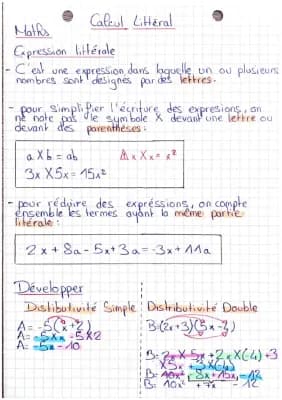 Calcul Littéral
Maths
Expression littérale
- C'est une expression dans laquelle un ou plusieurs
nombres sont désignés par des lettres.
- pour simplifier l'écriture des expressions, on
ne note pas le symbole X devant une lettre ou
devant des parenthèses:
a X b = ab
⚠ x X x = x²
3x X 5x = 15x²
- pour réduire des expréssions, on compte
ensemble les termes ayant la même partie
litérale:
2x + 8a - 5x + 3a = -3x + 11a
Développer
Distibutivité Simple
A = -5(x+2)
A = -5Xx -5X2
A = -5x - 10
Distributivité Double
B = (2x+3)(5x-4)
B = 2x X 5x + 2x X (-4) + 3
X 5x + 3 X (-4)
B = 10x² - 8x + 15x - 12
B = 10x² + 7x - 12